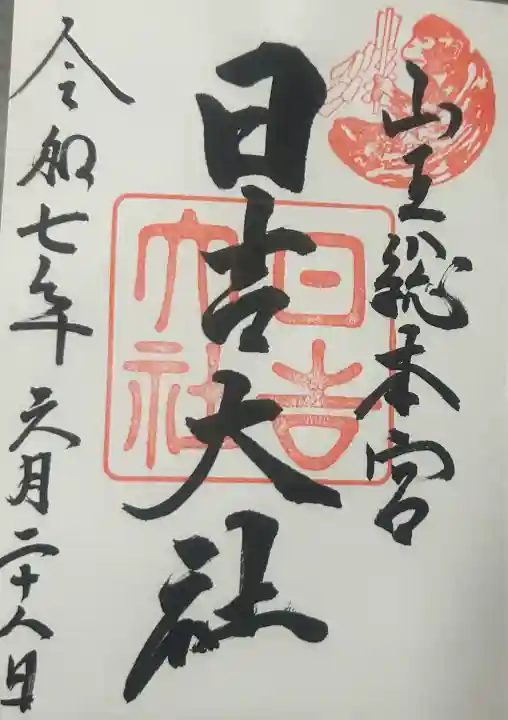 山王総本宮
日吉大社
日吉大社
令和七年六月二十八日